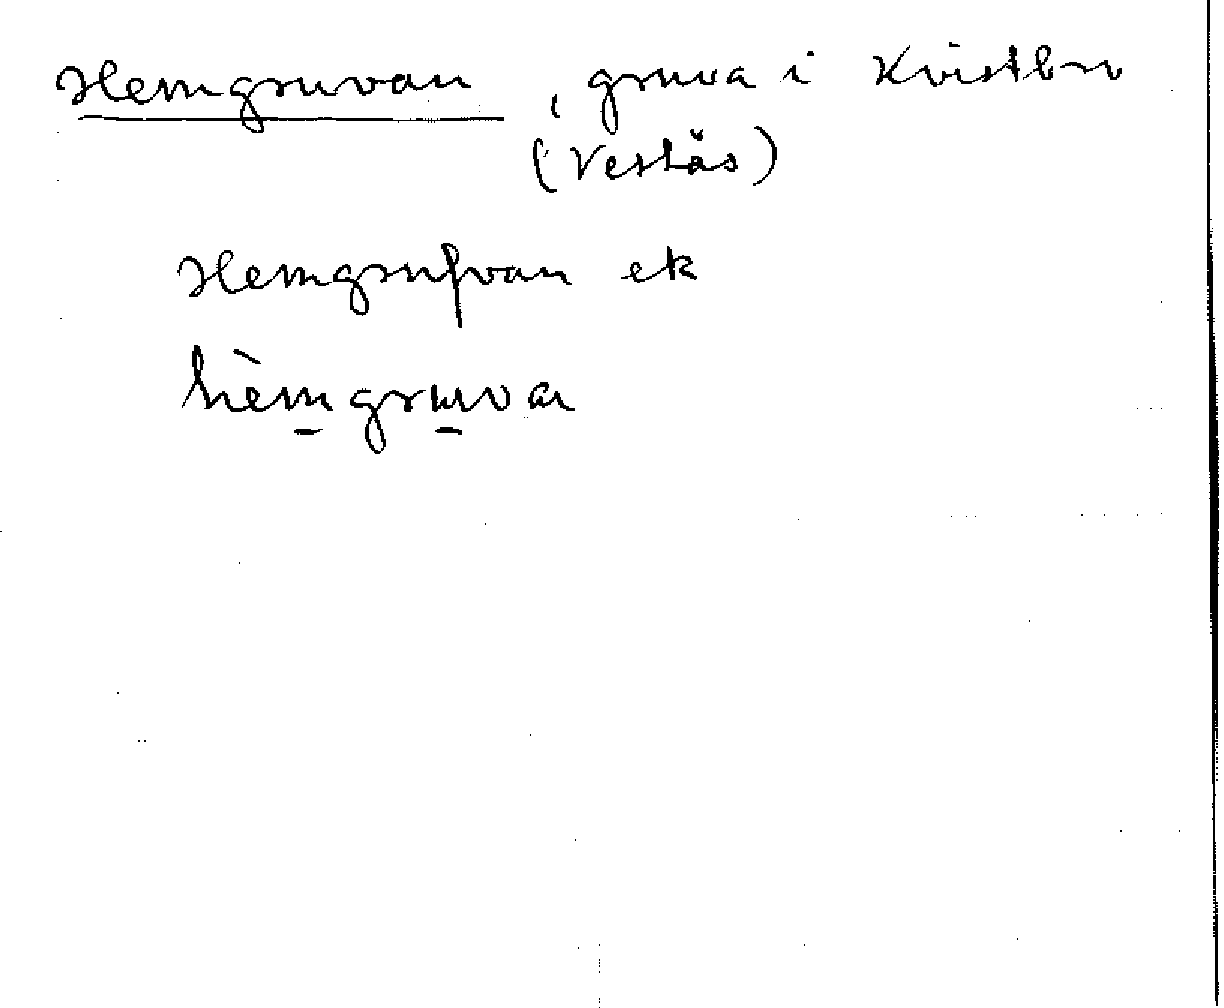 Hemgruvan, gruva i Kvistbro
(Vestås)
Hemgrufvan ek
hèmgruvan